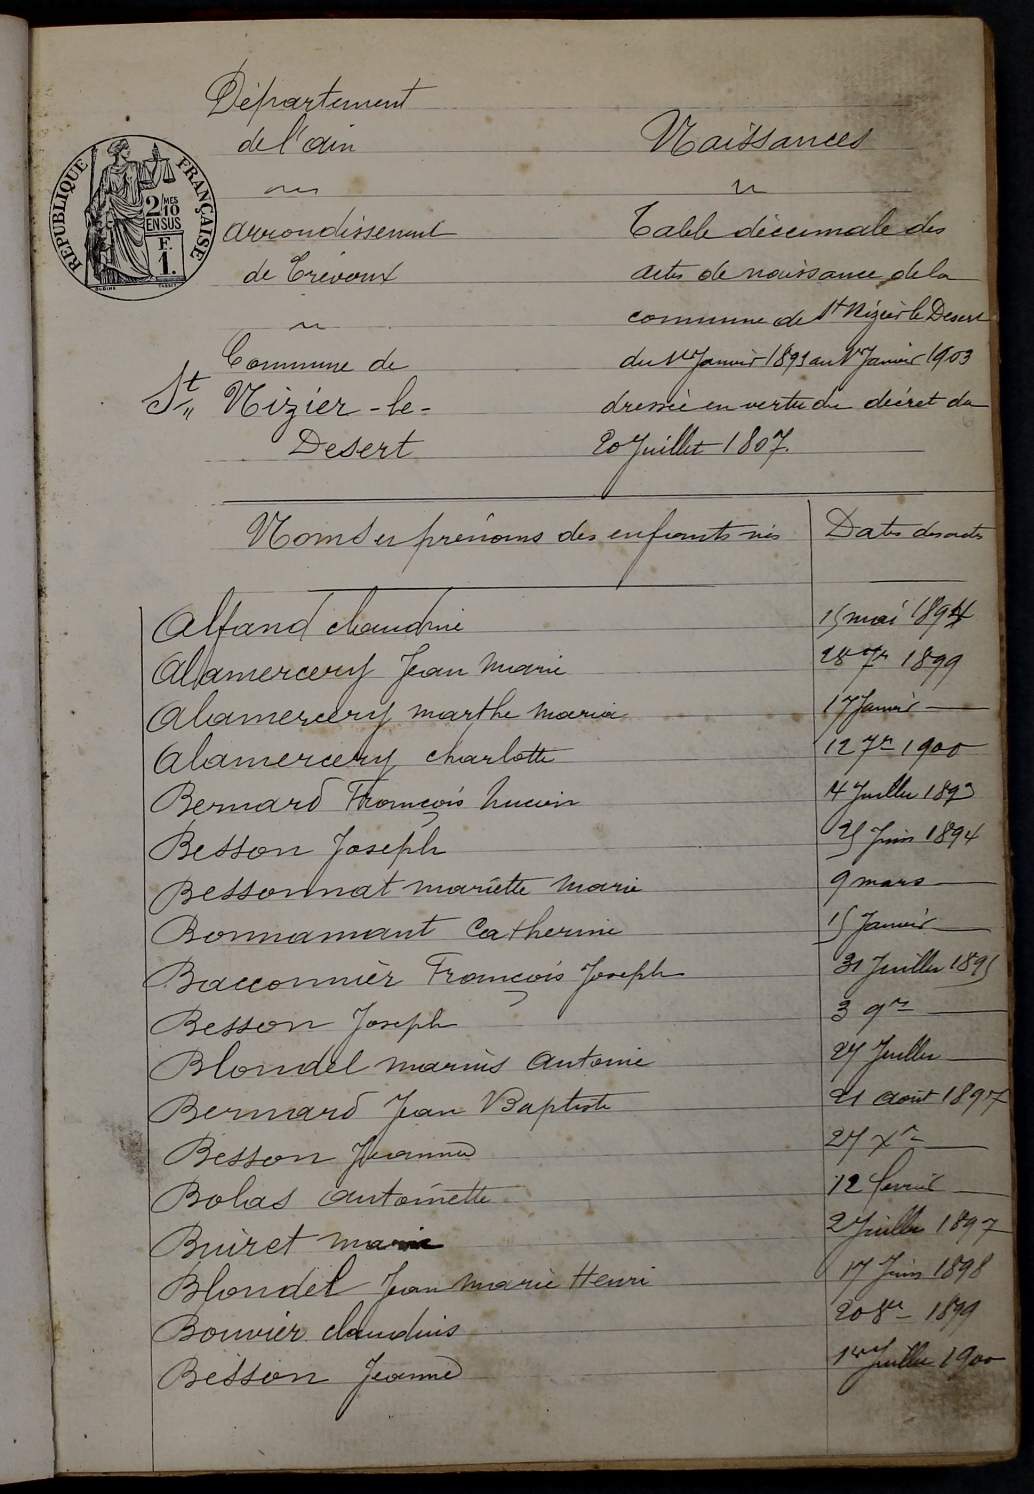 Département
de l'ain
arrondissement
de Trévoux
Commune de
St Nizier-le-
Desert
RÉPUBLIQUE FRANÇAISE
2/10 MES
EN SUS
F.
1.
Naissances
Table décennale des
actes de naissance de la
commune de St Nizier le Desert
du 1er Janvier 1893 au 1er Janvier 1903
dressée en vertu du décret du
20 Juillet 1807.
Noms et prénoms des enfants nés Dates des actes
Alfand claudine 15 mai 1894
Alamercery Jean Marie 28 1899
Alamercery marthe maria 17 Janvier —
Alamercery charlotte 12 7re 1900
Bernard François Lucien 14 Juillet 1893
Besson Joseph 25 Juin 1894
Bessonnat mariette Marie 9 mars —
Bonnamant Catherine 15 Janvier —
Bacconnier François Joseph 31 Juillet 1895
Besson Joseph 3 9re —
Blondel marius antoine 27 Juillet —
Bernard Jean Baptiste 21 août 1897
Besson Jeanne 27 Xre —
Bolas antoinette 12 fevrier —
Buiret marie 2 Juillet 1897
Blondel Jean Marie Henri 17 Juin 1898
Bouvier claudius 20 8re — 1899
Besson Jeanne 1er Juillet 1900